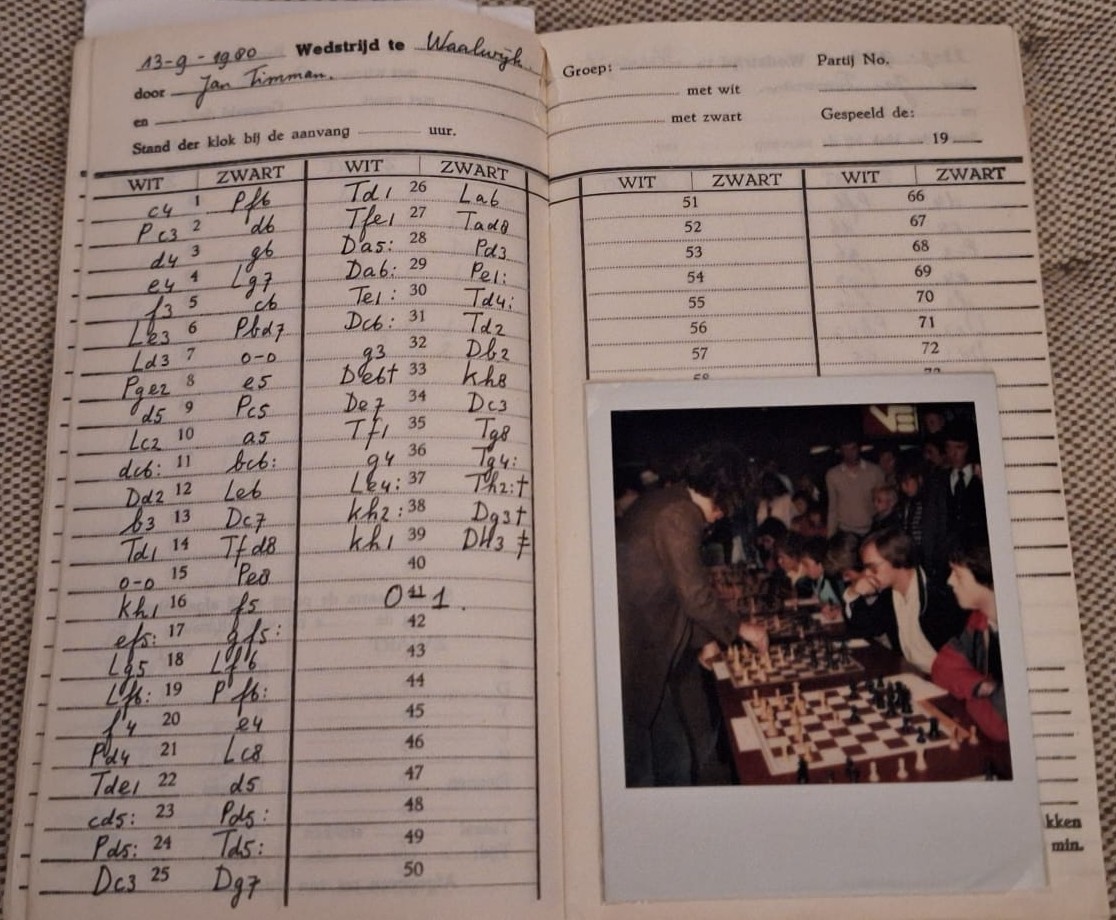 13-9-1980 Wedstrijd te Waalwijk.
door Jan Timman.
en
Stand der klok bij de aanvang uur.
WIT ZWART WIT ZWART
c4 1 Pf6 Td1 26 La6
Pc3 2 d6 Tfe1 27 Tad8
d4 3 g6 Da5: 28 Pd3
e4 4 Lg7 Da6: 29 Pe1:
f3 5 c6 Te1: 30 Td4:
Le3 6 Pbd7 Dc6: 31 Td2
Ld3 7 0-0 g3 32 Db2
Pge2 8 e5 De6† 33 Kh8
d5 9 Pc5 De7 34 Dc3
Lc2 10 a5 Tf1 35 Tg8
dc6: 11 bc6: g4 36 Tg4:
Dd2 12 Le6 Le4: 37 Th2:†
b3 13 Dc7 Kh2: 38 Dg3†
Td1 14 Tfd8 Kh1 39 DH3 ‡
0-0 15 Pe8 40
Kh1 16 f5 0 41 1.
ef5: 17 gf5: 42
Lg5 18 Lf6 43
Lf6: 19 Pf6: 44
f4 20 e4 45
Pd4 21 Lc8 46
Tde1 22 d5 47
cd5: 23 Pd5: 48
Pd5: 24 Td5: 49
Dc3 25 Dg7 50
Groep: Partij No.
met wit
met zwart Gespeeld de:
19
WIT ZWART WIT ZWART
51 66
52 67
53 68
54 69
55 70
56 71
57 72
kken
min.